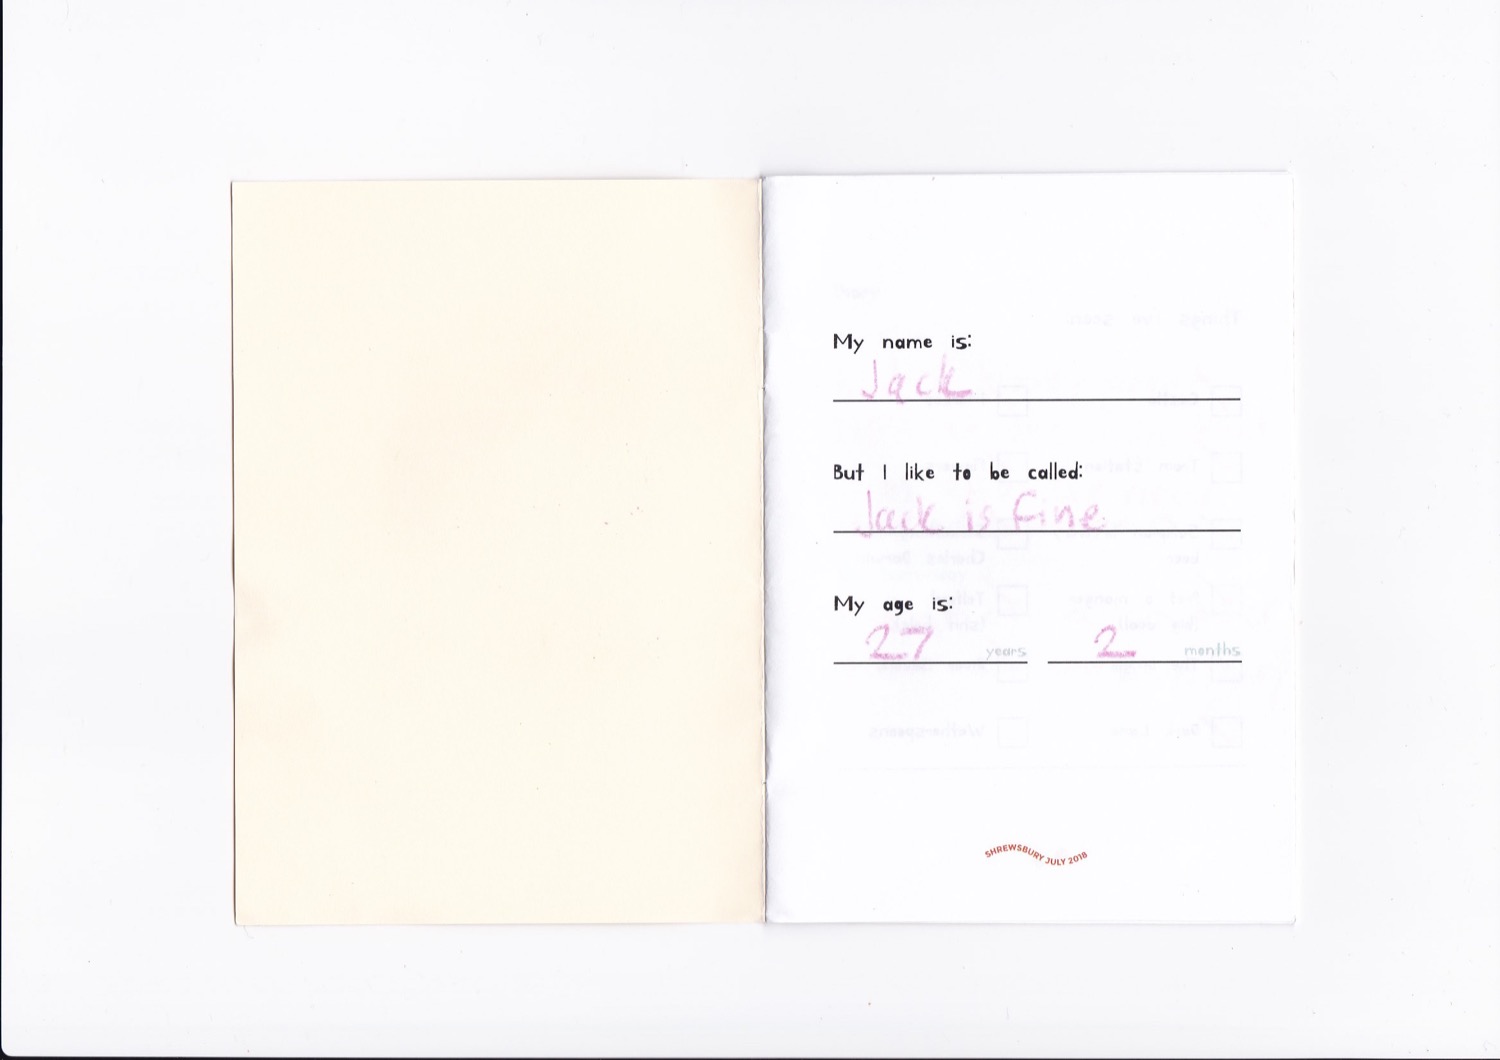 My name is:
Jack
But I like to be called:
Jack is fine
My age is:
27 years 2 months
SHREWSBURY JULY 2018